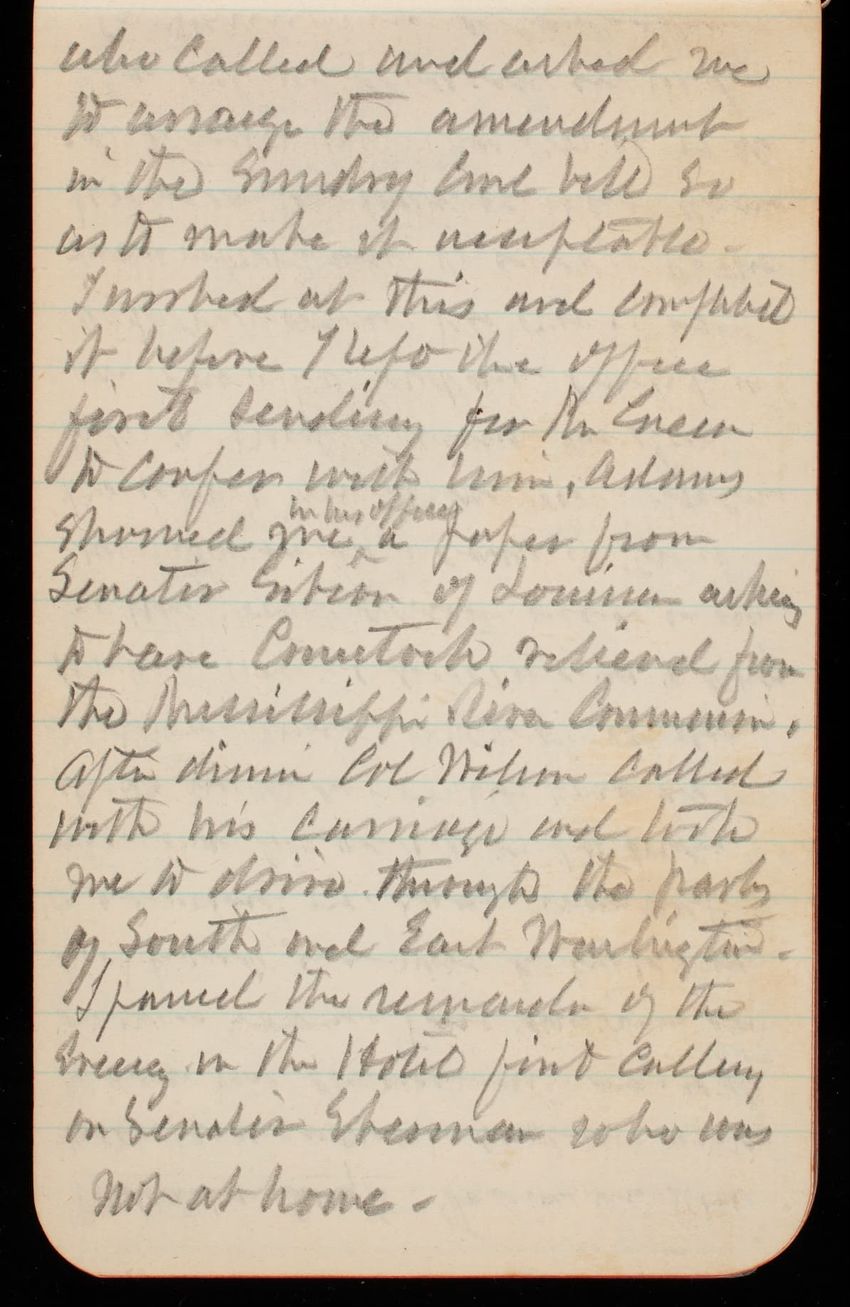 who called and asked me
to arrange the amendment
in the Sundry Civil bill so
as to make it acceptable -
I worked at this and completed
it before I left the office
first sending for Mr Green
to confer with him. Adams
in his office
showed me ^ a paper from
Senator Gibson of Louisiana asking
to have Comstock relieved from
the Mississippi River Commission.
After dinner Col Wilson called
with his carriage and took
me to drive through the parks
of South and East Washington -
I passed the remainder of the
Evening in the Hotel first calling
on Senator Sherman who was
not at home -